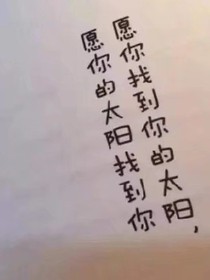 愿你找到你的太阳,
愿你的太阳找到你